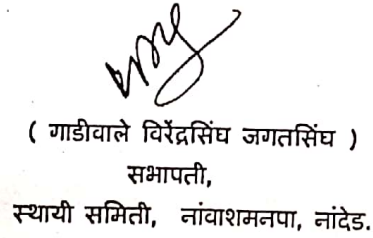 ( गाडीवाले विरेंद्रसिंघ जगतसिंघ )
सभापती,
स्थायी समिती, नांवाशमनपा, नांदेड.